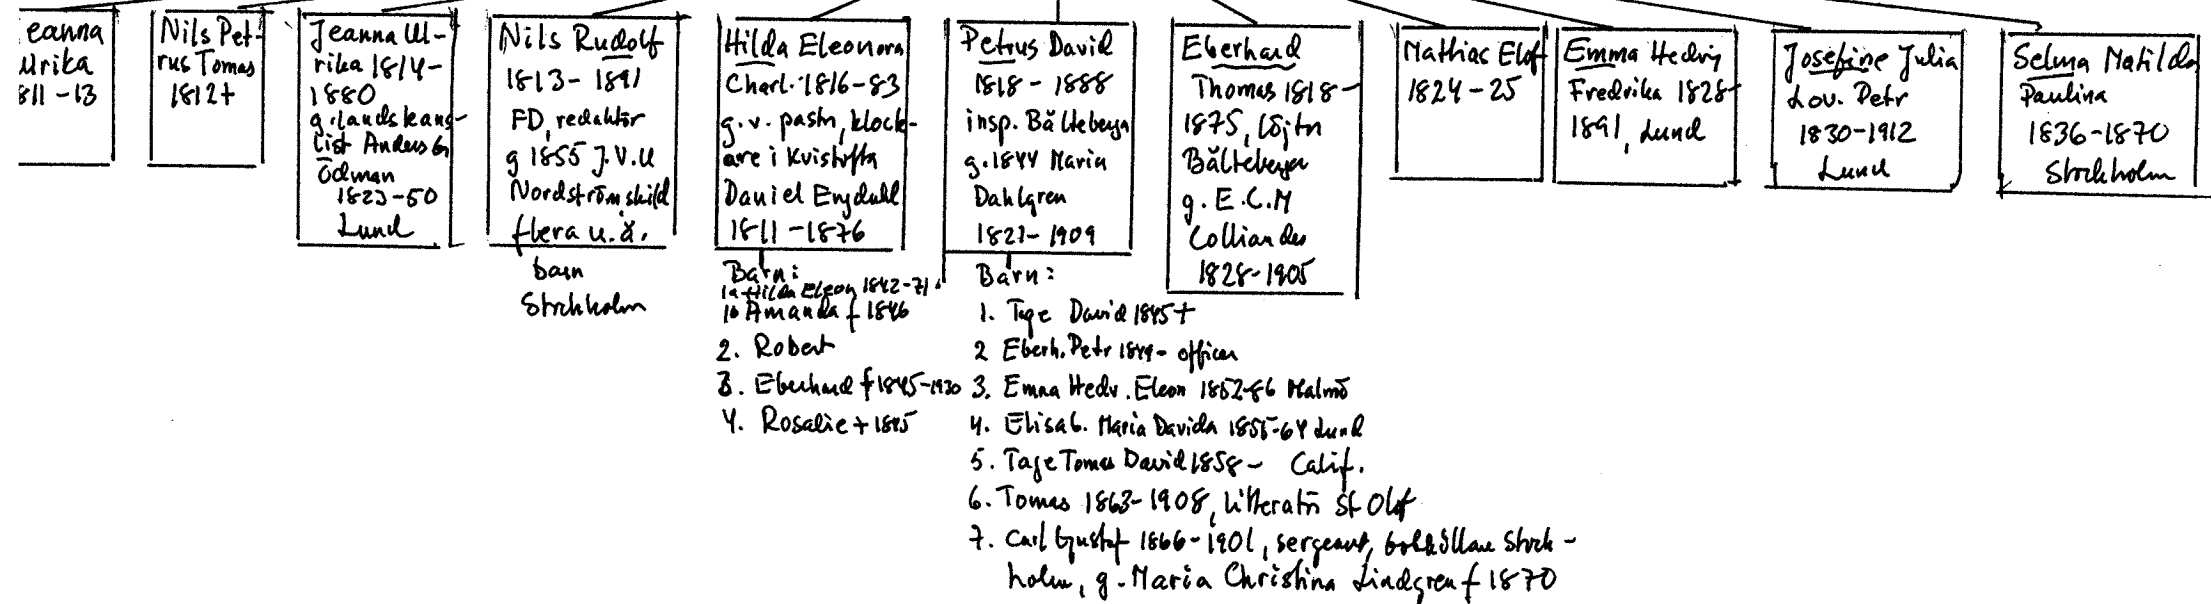 eanna
Ulrika
811-13
Nils Pet-
rus Tomas
1812+
Jeanna Ul-
rika 1814-
1880
g. landskans-
list Anders
Ödman
1823-50
Lund
Nils Rudolf
1813-1891
FD, redaktör
g 1855 J.V.U
Nordströmskild
flera u.ä.
barn
Stockholm
Hilda Eleonora
Charl. 1816-83
g.v. pastn, klock-
are i Kvistofta
Daniel Engdahl
1811-1876
Barn:
1a Hilda Eleon 1842-71
1b Amanda f 1846
2. Robert
3. Eberhard f 1845-1930
4. Rosalie + 1845
Petrus David
1818-1888
insp. Bälteberga
g. 1844 Maria
Dahlgren
1821-1909
Barn:
1. Tage David 1845+
2 Eberh. Petr 1849- officer
3. Emma Hedv. Eleon 1852-86 Malmö
4. Elisab. Maria Davida 1855-64 Lund
5. Tage Tomas David 1858- Calif.
6. Tomas 1863-1908, litteratör St Olof
7. Carl Gustaf 1866-1901, sergeant, bokhållare Stock-
holm, g. Maria Christina Lindgren f 1870
Eberhard
Thomas 1818-
1875, löjtn
Bälteberga
g. E.C.M
Colliander
1828-1905
Mathias Elof
1824-25
Emma Hedvig
Fredrika 1828-
1891, Lund
Josefine Julia
Lov. Petr
1830-1912
Lund
Selma Matilda
Paulina
1836-1870
Stockholm